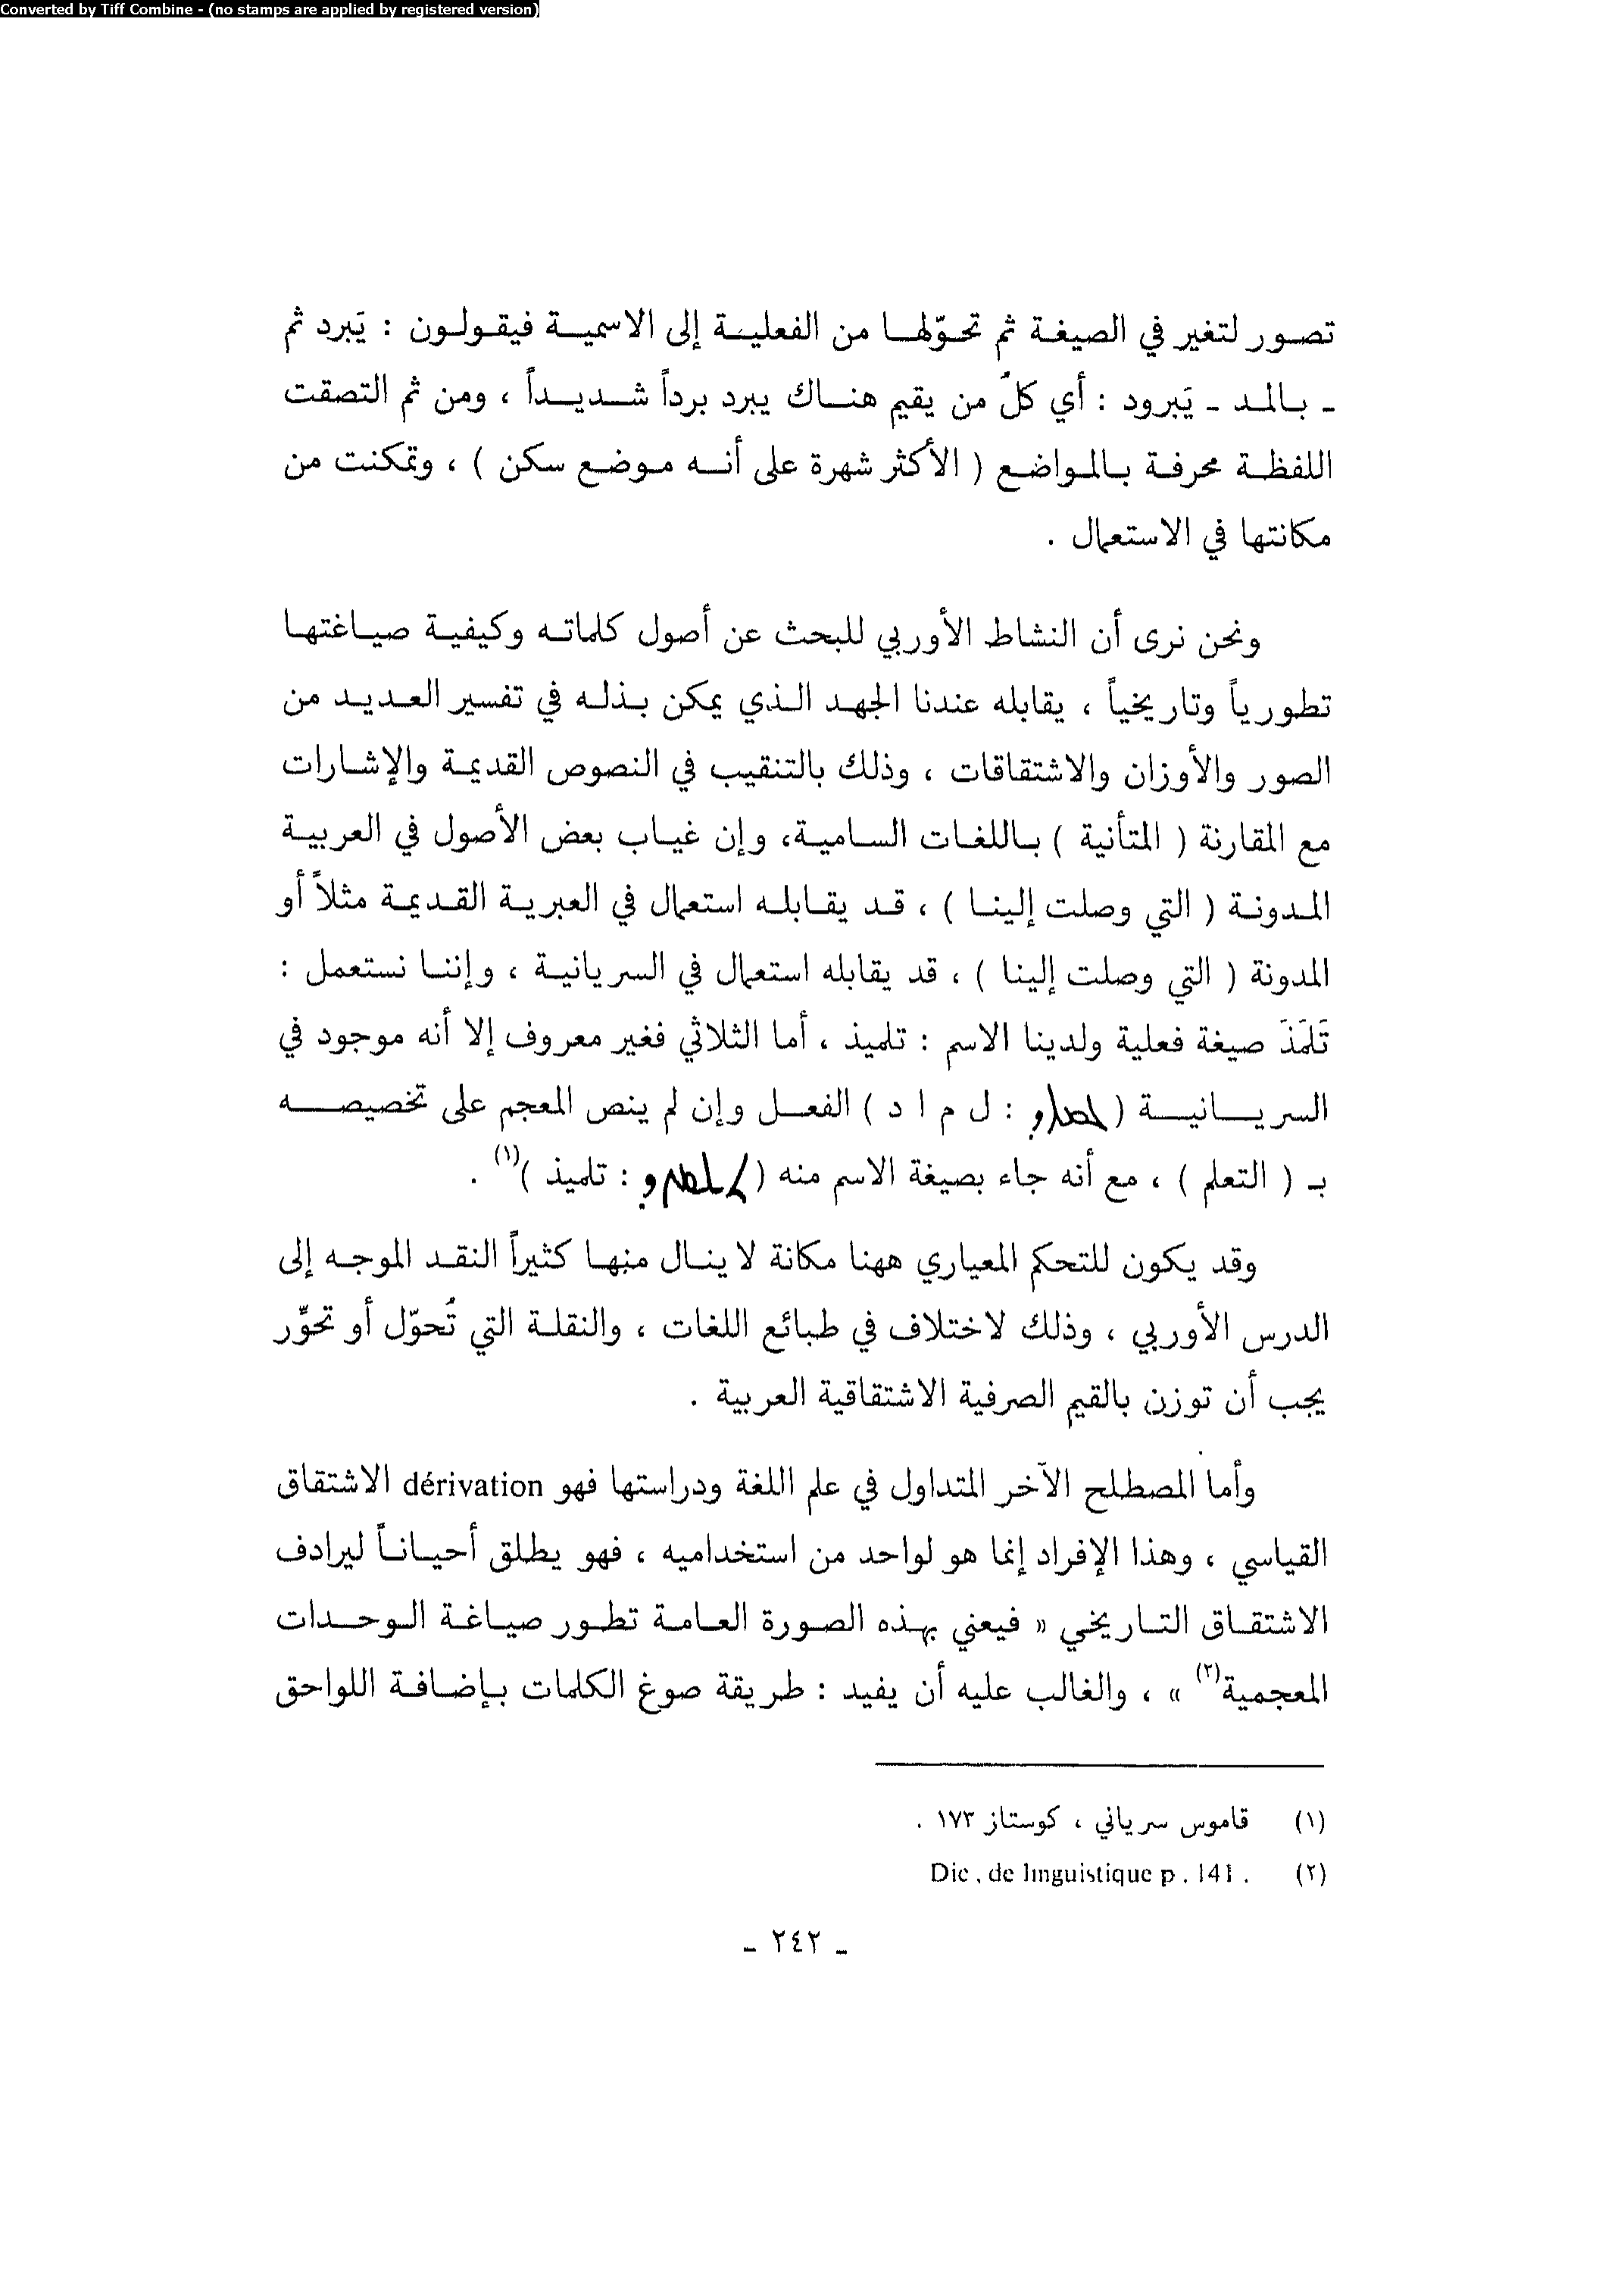 Converted by Tiff Combine - (no stamps are applied by registered version)
تصور لتغير في الصيغة ثم تحوّلها من الفعلية إلى الاسمية فيقولون : يَبرد ثم
ـ بالمد ـ يَبرود : أي كلُ من يقيم هناك يبرد برداً شديداً ، ومن ثم التصقت
اللفظة محرفة بالمواضع ( الأكثر شهرة على أنه موضع سكن ) ، وتمكنت من
مكانتها في الاستعمال .
ونحن نرى أن النشاط الأوربي للبحث عن أصول كلماته وكيفية صياغتها
تطورياً وتاريخياً ، يقابله عندنا الجهد الذي يمكن بذله في تفسير العديد من
الصور والأوزان والاشتقاقات ، وذلك بالتنقيب في النصوص القديمة والإشارات
مع المقارنة ( المتأنية ) باللغات السامية، وإن غياب بعض الأصول في العربية
المدونة ( التي وصلت إلينا ) ، قد يقابله استعمال في العبرية القديمة مثلاً أو
المدونة ( التي وصلت إلينا ) ، قد يقابله استعمال في السريانية ، وإننا نستعمل :
تَلمَذَ صيغة فعلية ولدينا الاسم : تلميذ ، أما الثلاثي فغير معروف إلا أنه موجود في
السريانية ( : ل م ا د ) الفعل وإن لم ينص المعجم على تخصيصه
بـ ( التعلم ) ، مع أنه جاء بصيغة الاسم منه ( : تلميذ )(١) .
وقد يكون للتحكم المعياري ههنا مكانة لا ينال منها كثيراً النقد الموجه إلى
الدرس الأوربي ، وذلك لاختلاف في طبائع اللغات ، والنقلة التي تُحوّل أو تحوِّر
يجب أن توزن بالقيم الصرفية الاشتقاقية العربية .
وأما المصطلح الآخر المتداول في علم اللغة ودراستها فهو dérivation الاشتقاق
القياسي ، وهذا الإفراد إنما هو لواحد من استخداميه ، فهو يطلق أحياناً ليرادف
الاشتقاق التاريخي « فيعني بهذه الصورة العامة تطور صياغة الوحدات
المعجمية(٢) » ، والغالب عليه أن يفيد : طريقة صوغ الكلمات بإضافة اللواحق
(١) قاموس سرياني ، كوستاز ١٧٣ .
(٢) Dic . de linguistique p . 141 .
ـ ٢٤٢ ـ